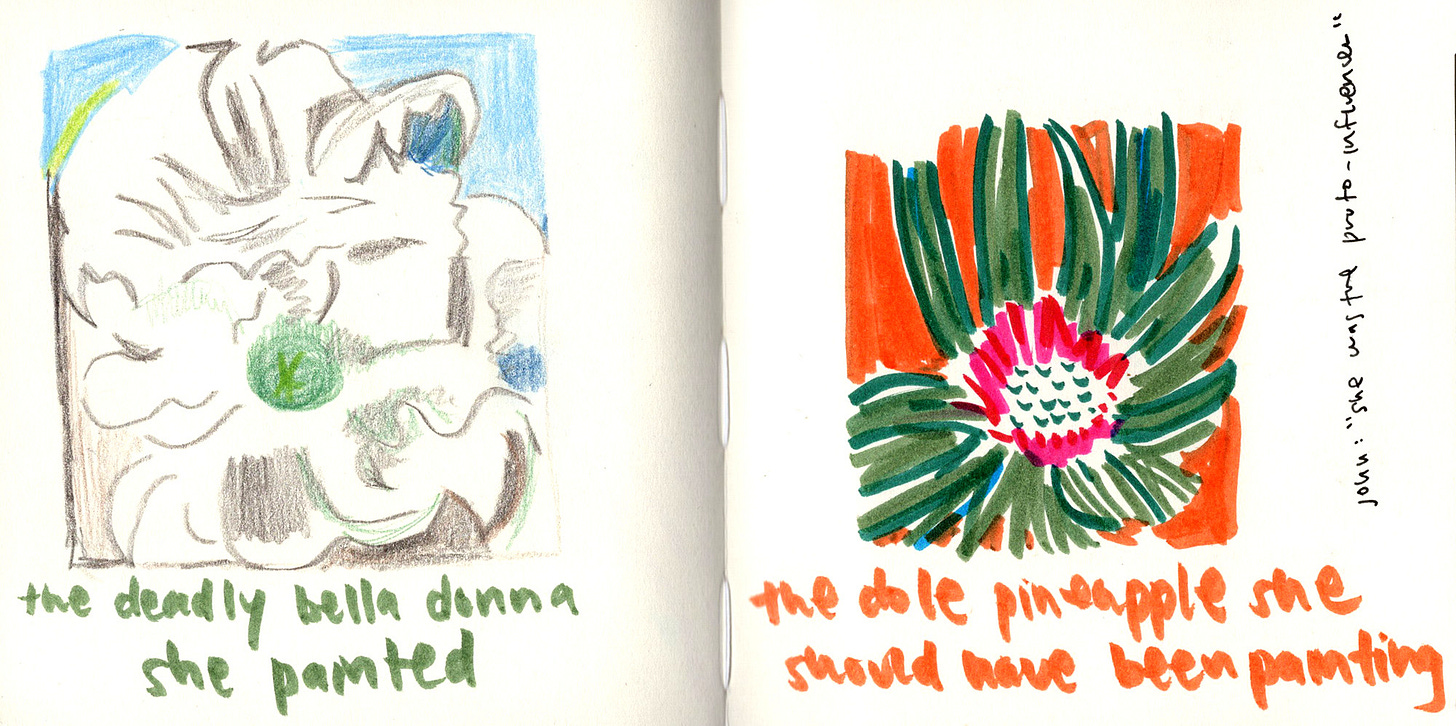 the deadly bella donna
she painted
the dole pineapple she
should have been painting
john: "she was the proto-influencer"